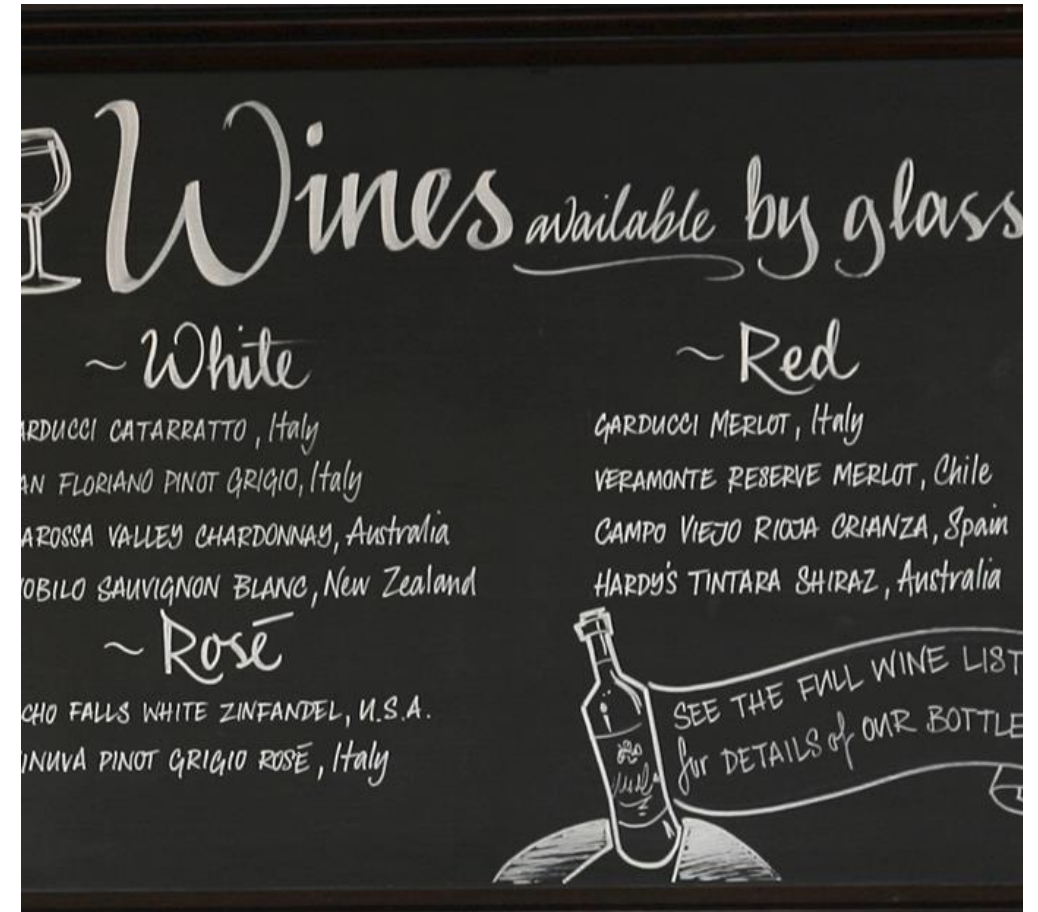 Wines available by glass
~ White
ARDUCCI CATARRATTO, Italy
AN FLORIANO PINOT GRIGIO, Italy
AROSSA VALLEY CHARDONNAY, Australia
OBILO SAUVIGNON BLANC, New Zealand
~ Rosé
CHO FALLS WHITE ZINFANDEL, U.S.A.
INUVA PINOT GRIGIO ROSÉ, Italy
~ Red
GARDUCCI MERLOT, Italy
VERAMONTE RESERVE MERLOT, Chile
CAMPO VIEJO RIOJA CRIANZA, Spain
HARDY'S TINTARA SHIRAZ, Australia
SEE THE FULL WINE LIST
for DETAILS of OUR BOTTLE